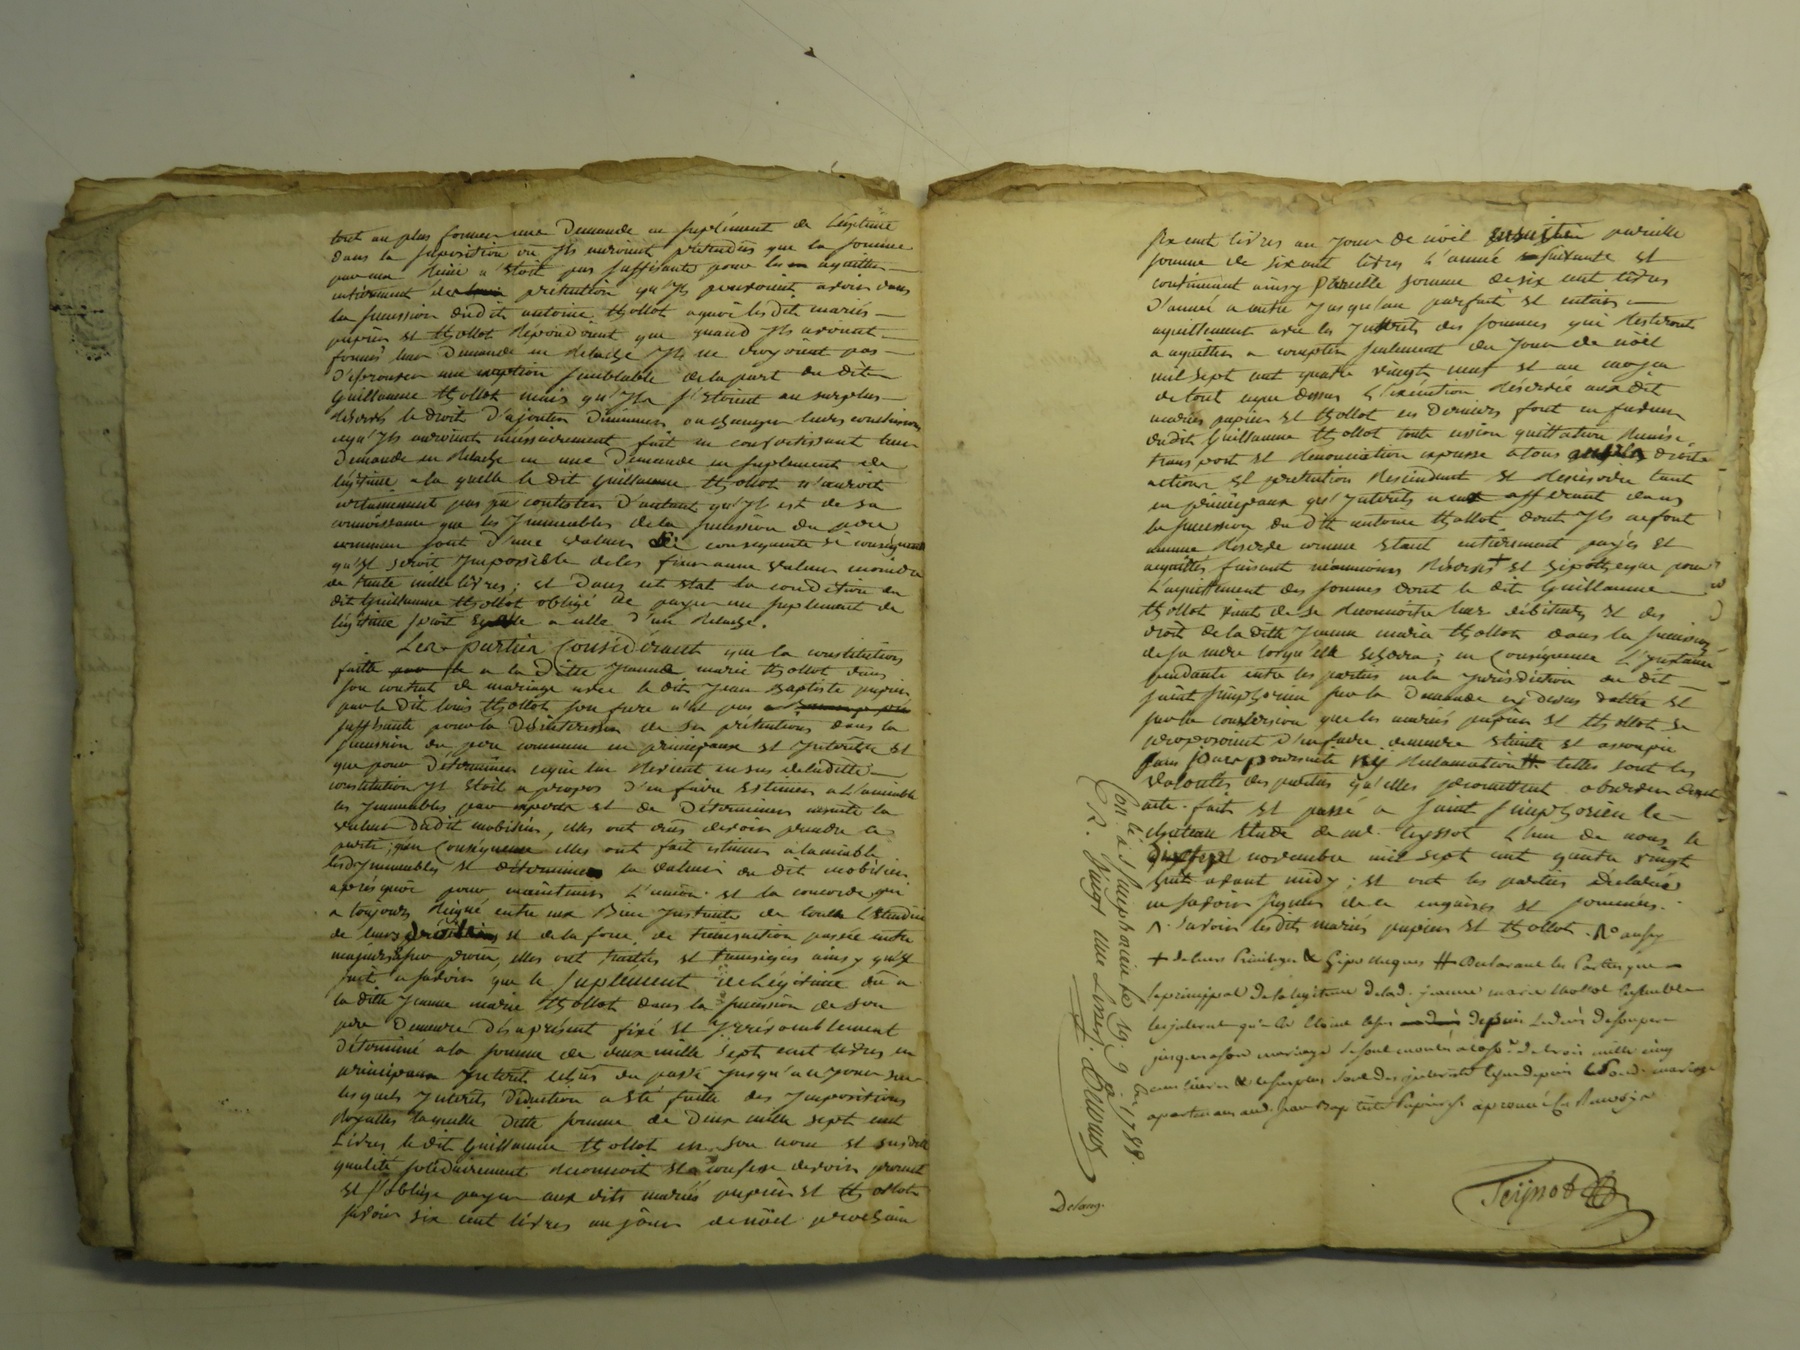 tout au plus former une Demande en suplément de Légitime
dans la suposition où Ils auroient prétendus que la somme
par eux Recue n'étoit pas suffisante pour les aquitter
entierement des prétention qu'Ils pouvoient avoir dans
la succession dudit antoine thollot aquoi lesdit mariés
pupier et thollot Répondoient que quand Ils avoient
formés leur Demande en Relache Ils ne croyoient pas
D'éprouver une exeption semblable de la part du dit
Guillaume thollot mais qu'Ils s'étoient au surplus
Réservés le droit D'ajouter Diminuer ou changer leurs conclusions
cequ'Ils auroient nécéssairement fait en convertissant leur
Demande en Relache en une Demande en suplement de
légitime a la quelle le dit Guillaume thollot n'auroit
certainement pas pu contester D'autant qu'Il est de sa
connoissance que les Immeubles de la succession du pere
commun sont d'une valeur consequente
qu'Il seroit Impossible de les fixer aune valeur moindre
de trente mille livres; et Dans cet état la condition du
dit Guillaume thollot obligé de payer un suplement de
légitime seroit egale a celle d'un Relache.
Les parties Considérant que la constitution
faitte a la Ditte Jeanne marie thollot dans
son contrat de mariage avec le dit Jean Baptiste pupier
par le dit louis thollot son frere n'est pas
suffisante pour la Désinteresser de ses prétentions dans la
succession du pere commun en principaux et Interêts et
que pour Déterminer cequi lui Revient en sus de laditte
constitution Il étoit a propos D'en faire estimer a L'amiable
les Immeubles par experts et de Déterminer ensuite la
valeur dudit mobilier, elles ont crus devoir prendre ce
party; en Conséquence elles ont fait estimer a lamiable
lesdits Immeubles et déterminer la valeur du dit mobilier
après quoi pour maintenir L'union et la concorde qui
a toujours Régné entre eux Bien Instruits de toutte L'étendue
de leurs et de la force de transaction passée entre
majeurs sur procès, elles ont traittés et transigés ainsy qu'il
suit a savoir que le suplément de Légitime dû a
la ditte Jeanne marie thollot dans la succession de son
pere Demeure Dès aprésent fixé et Irrévocablement
déterminé a la somme de deux mille sept cent livres en
principaux Interêts echus du passé Jusqu'a ce jour sur
lesquels Interêts Déduction a été faitte des Impositions
Royalles laquelle Ditte somme de Deux mille sept cent
Livres le dit Guillaume thollot en son nom et susditte
qualité solidairement Reconnoit et confesse devoir promet
et s'oblige payer aux dits mariés pupier et thollot
savoir six cent livres au jour de nöel prochain
six cent livres au jour de nöel pareille
somme de six cent livres L'année suivante et
continuant ainsy pareille somme de six cent livres
D'année a autre Jusqu'au parfait et entier
aquittement avec les Interêts des sommes qui Resteront
a aquitter a compter seulement du Jour de nöel
mil sept cent quatre vingts neuf et au moyen
de tout ceque dessus L'exécution Réservée aux dit
mariés pupier et thollot ces Derniers font en faveur
dudit Guillaume thollot toute cession quittation Remise
transport et Renonciation expresse a tous droits
actions et prétention Rescindant et Rescisoire tant
en principaux qu'Interêts a eux afférant dans
la succession du dit antoine thollot dont Ils ne font
aucune Réserve comme étant entierement payés et
aquittés faisant néanmoins Réserves + et hipotheque pour
L'aquittement des sommes dont le dit Guillaume
thollot vient de se Reconnoitre leur débiteur et des
droits de la ditte Jeanne marie thollot dans la succession
de sa mere lorsqu'elle echera; en Conséquence L'Instance
pendante entre les parties en la Jurisdiction du dit
saint simphorien sur la Demande cy dessus dattée et
sur la conversion que les mariés pupier et thollot se
proposoient D'en faire demeure éteinte et assoupie
sans poursuitte ny Reclamation # telles sont les
volontés des parties qu'elles promettent observer dont
acte. fait et passé a saint simphorien le
chateau etude de me teyssot L'un de nous le
Dixsept novembre mil sept cent quatre vingt
huit avant midy; et ont les parties Déclarées
ne savoir signer de ce enquises et sommées.
savoir lesdits mariés pupier et thollot
+ de leurs Privileges & hipotheques # Declarant les Parties que
le principal de la légitime de lad. jeanne marie thollot ensemble
les interets depuis le décès de son pere
jusques a son mariage se sont montés a la so.e de trois mille cinq
cens livres & le surplus sont des interets echus depuis le d. mariage
apartenans aud. jean Baptiste Pupier approuvé les Renvois
Teyssot
Con.lé à Simphorien le 19 9bre 1788.
R. Vingt une Livres
Delang.